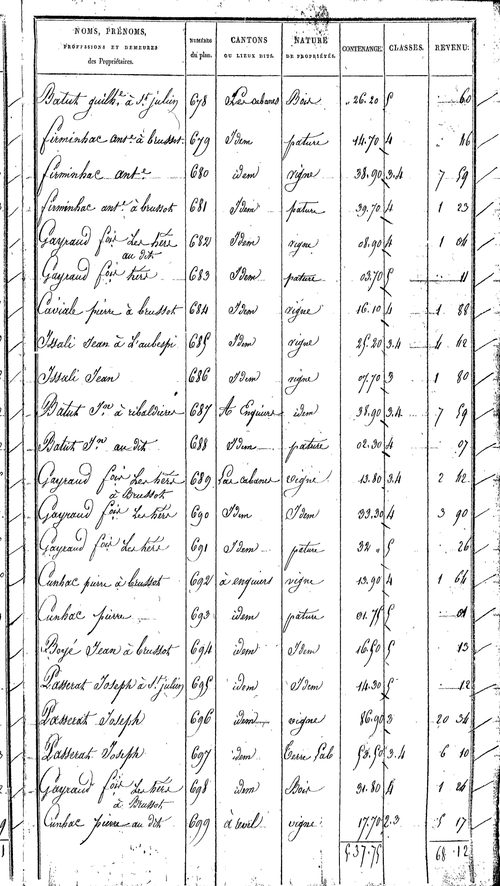 NOMS, PRÉNOMS, PROFESSIONS ET DEMEURES des Propriétaires. NUMÉRO du plan. CANTONS OU LIEUX DITS. NATURE DE PROPRIÉTÉS. CONTENANCE. CLASSES. REVENU.
Batut guilhe à St julien 678 Las cabanes Bois 26.20 5 60
firminhac ante à brussot 679 Idem pature 14.70 4 46
firminhac ante 680 idem vigne 38.90 3.4 7 59
firminhac ante à brussot 681 Idem pature 39.70 4 1 23
Gayraud fois Les hérs au dit 682 Idem vigne 08.90 4 1 04
Gayraud fois hérs 683 Idem pature 03.70 5 11
Caviale pierre à brussot 684 Idem vigne 16.10 4 1 88
Issali Jean à Laubespi 685 Idem vigne 25.20 3.4 4 62
Issali Jean 686 Idem vigne 07.70 3 1 80
Batut Jn à ribaldieres 687 A Enguiers idem 38.90 3.4 7 59
Batut Jn au dit 688 Idem pature 02.30 4 07
Gayraud fois Les hérs à Brussot 689 Las cabanes vigne 13.80 3.4 2 62
Gayraud fois Les hérs 690 Idem Idem 33.30 4 3 90
Gayraud fois Les hérs 691 Idem pature 32 " 5 26
Cunhac pierre à brussot 692 à enguiers vigne 13.90 4 1 64
Cunhac pierre 693 idem pature 01.75 5 01
Boyé Jean à brussot 694 idem Idem 16.50 5 13
Passerat Joseph à St julien 695 idem Idem 14.30 5 12
Passerat Joseph 696 idem vigne 86.90 3 20 34
Passerat Joseph 697 idem Terre Lab 58.50 3.4 6 10
Gayraud fois Les hérs à Brussot 698 idem Bois 31.80 4 1 26
Cunhac pierre au dit 699 vigne 17.70 2.3 5 17
537.75 68.12